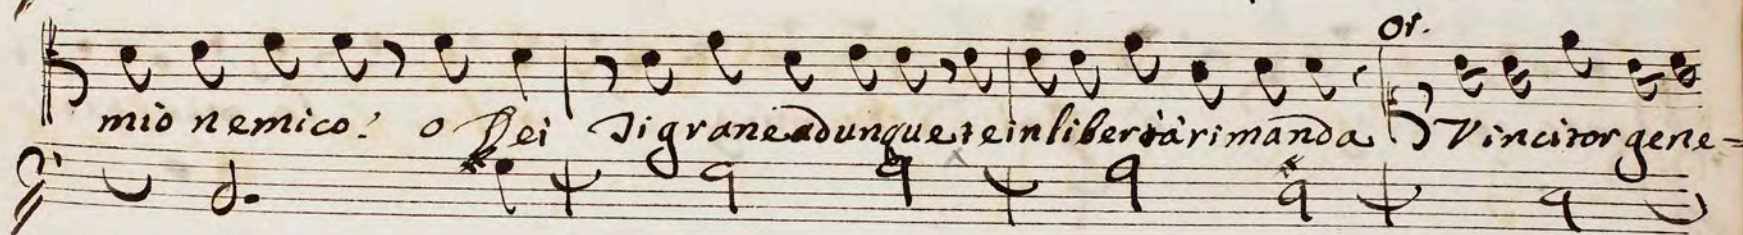 Or.
mio nemico! o Dei Tigrane adunque te in libertà rimanda Vincitor gene=